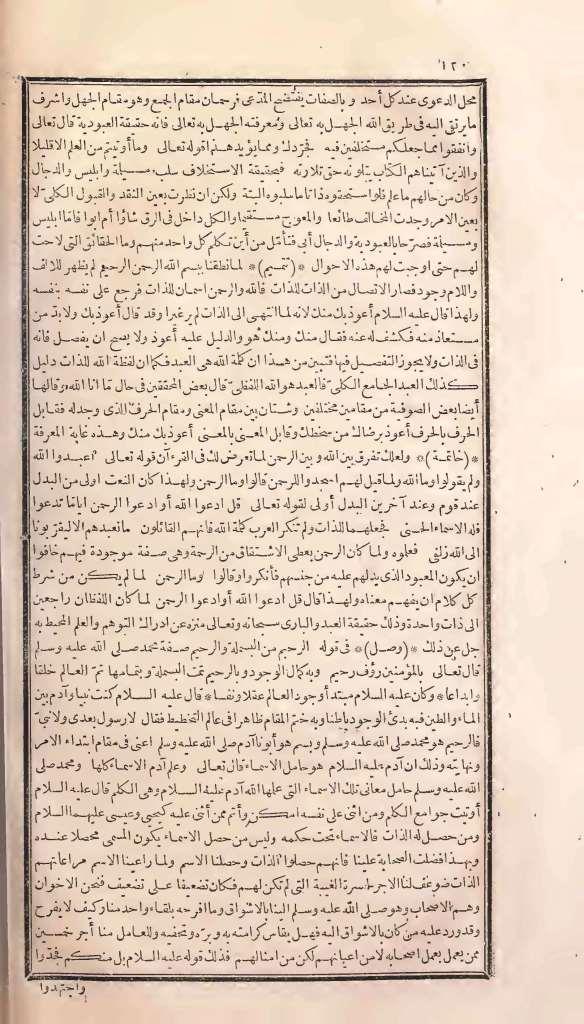 ١٢٠
محل الدعوى عند كل أحد وبالصفات يفتضح المدعى فرحمان مقام الجمع وهو مقام الجهل واشرف
ما يرتقى اليه فى طريق الله الجهل به تعالى ومعرفته الجهل به تعالى فانه حقيقة العبودية قال تعالى
وانفقوا مما جعلكم مستخلفين فيه فجردك ومما يؤيد هذا قوله تعالى وما أوتيتم من العلم الاقليلا
والذين آتيناهم الكتاب يتلونه حق تلاوته فبحقيقة الاستخلاف سلب مسيلمة وابليس والدجال
وكان من حالهم ما علم فلو استحقوه ذاتا ما سلبوه البتة ولكن ان نظرت بعين النقد والقبول الكلى لا
بعين الامر وجدت المخالف طائعا والمعوج مستقيما والكل داخل فى الرق شاؤا أم ابوا فاما ابليس
ومسيلمة فصرحا بالعبودية والدجال أبى فتأمل من أين تكلم كل واحد منهم وما الحقائق التى لاحت
لهم حتى اوجبت لهم هذه الاحوال * (تتميم) * لما نطقنا ببسم الله الرحمن الرحيم لم يظهر للالف
واللام وجود فصار الاتصال من الذات للذات فالله والرحمن اسمان للذات فرجع على نفسه بنفسه
ولهذا قال عليه السلام أعوذ بك منك لانه لما انتهى الى الذات لم ير غيرا وقد قال أعوذ بك ولا بد من
مستعاذ منه فكشف له عنه فقال منك ومنك هو والدليل عليه أعوذ ولا يصح ان يفصل فانه
فى الذات ولا يجوز التفصيل فيها فتبين من هذا ان كلمة الله هى العبد فكما ان لفظة الله للذات دليل
كذلك العبد الجامع الكلى فالعبد هو الله اللفظى قال بعض المحققين فى حال ما انا الله وقالها
أيضا بعض الصوفية من مقامين مختلفين وشتان بين مقام المعنى ومقام الحرف الذى وجد له فقابل
الحرف بالحرف أعوذ برضاك من سخطك وقابل المعنى بالمعنى أعوذ بك منك وهذه غاية المعرفة
* (خاتمة) * ولعلك تفرق بين الله وبين الرحمن لما تعرض لك فى القرءآن قوله تعالى اعبدوا الله
ولم يقولوا وما الله ولما قيل لهم اسجدوا للرحمن قالوا وما الرحمن ولهذا كان النعت اولى من البدل
عند قوم وعند آخرين البدل أولى لقوله تعالى قل ادعوا الله أو ادعوا الرحمن اياما تدعوا
فله الاسماء الحسنى فجعلهما للذات ولم تنكر العرب كلمة الله فانهم القائلون ما نعبدهم الا ليقربونا
الى الله زلفى فعلموه ولما كان الرحمن يعطى الاشتقاق من الرحمة وهى صفة موجودة فيهم خافوا
ان يكون المعبود الذى يدلهم عليه من جنسهم فأنكروا وقالوا وما الرحمن لما لم يكن من شرط
كل كلام ان يفهم معناه ولهذا قال قل ادعوا الله أو ادعوا الرحمن لما كان اللفظان راجعين
الى ذات واحدة وذلك حقيقة العبد والبارى سبحانه وتعالى منزه عن ادراك التوهم والعلم المحيط به
جل عن ذلك * (وصل) * فى قوله الرحيم من البسملة والرحيم صفة محمد صلى الله عليه وسلم
قال تعالى بالمؤمنين رؤف رحيم وبه كمال الوجود وبالرحيم تمت البسملة وبتمامها تم العالم خلقا
وابداعا * وكان عليه السلام مبتدأ وجود العالم عقلا ونفسا * قال عليه السلام كنت نبيا وآدم بين
الماء والطين فبه بدئ الوجود باطنا وبه ختم المقام ظاهرا فى عالم التخطيط فقال لا رسول بعدى ولا نبى
فالرحيم هو محمد صلى الله عليه وسلم وبسم هو أبونا آدم صلى الله عليه وسلم اعنى فى مقام ابتداء الامر
ونهايته وذلك ان آدم عليه السلام هو حامل الاسماء قال تعالى وعلم آدم الاسماء كلها ومحمد صلى
الله عليه وسلم حامل معانى تلك الاسماء التى حملها الله آدم عليه السلام وهى الكلم قال عليه السلام
أوتيت جوامع الكلم ومن اثنى على نفسه امكن وأتم ممن أثنى عليه كيحيى وعيسى عليهما السلام
ومن حصل له الذات فالاسماء تحت حكمه وليس من حصل الاسماء يكون المسمى محصلا عنده
وبهذا فضلت الصحابة علينا فانهم حصلوا الذات وحصلنا الاسم ولما راعينا الاسم مراعاتهم
الذات ضوعف لنا الاجر لحسرة الغيبة التى لم تكن لهم فكان تضعيف على تضعيف فنحن الاخوان
وهم الاصحاب وهو صلى الله عليه وسلم الينا بالاشواق وما افرحه بلقاء واحد منا وكيف لا يفرح
وقد ورد عليه من كان بالاشواق اليه فهل يقاس كرامته به وبره وتحفيه وللعامل منا أجر خمسين
ممن يعمل بعمل اصحابه لا من اعيانهم لكن من امثالهم فذلك قوله عليه السلام بل منكم فجدوا
واجتهدوا